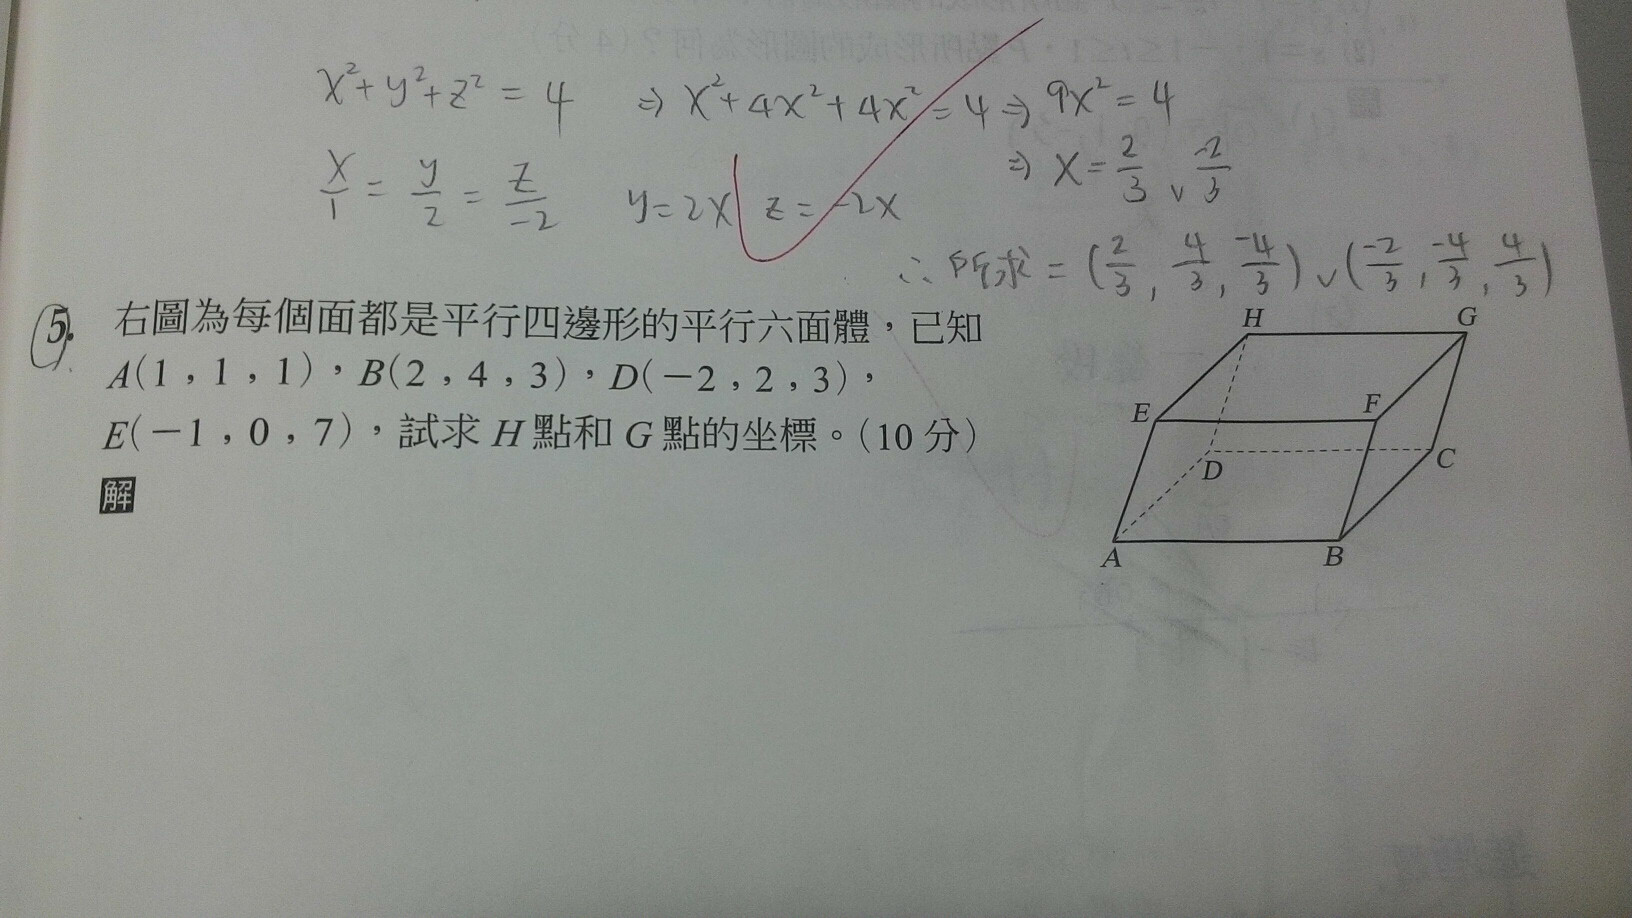 x²+y²+z² = 4 ⇒ x²+4x²+4x² = 4 ⇒ 9x² = 4
x/1 = y/2 = z/-2 y=2x z=-2x ⇒ x = 2/3 ∨ -2/3
∴所求 = (2/3, 4/3, -4/3) ∨ (-2/3, -4/3, 4/3)
5. 右圖為每個面都是平行四邊形的平行六面體，已知
A(1，1，1)，B(2，4，3)，D(−2，2，3)，
E(−1，0，7)，試求 H 點和 G 點的坐標。(10 分)
解
H G
E F
D C
A B